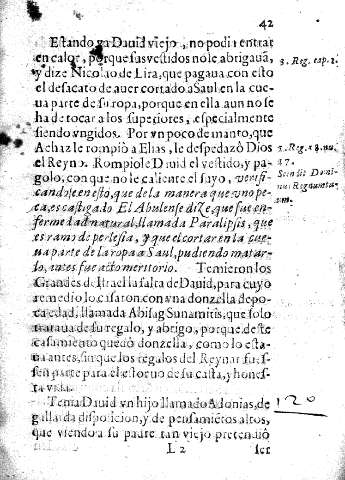 42
Estando ya Dauid viejo, no podia entrar
en calor, porque sus vestidos no le abrigauã,
y dize Nicolao de Lira, que pagaua con esto
el desacato de auer cortado a Saul en la cue
ua parte de su ropa, porque en ella aun no se
ha de tocar a los superiores, especialmente
siendo vngidos. Por vn poco de manto, que
Achaz le rompiò a Elias, le despedazò Dios
el Reyno. Rompiole Dauid el vestido, y pa-
golo, con que no le caliente el sayo, verifi
candose en esto, que de la manera que vno pe-
ca, es castigado. El Abulense dize, que fue en-
fermedad natural, llamada Paralipsis, que
es ramo de perlesia, y que el cortar en la cue-
ua parte de la ropa a Saul, pudiendo matar-
lo, antes fue acto meritorio. Temieron los
Grandes de Israel la falta de Dauid, para cuyo
remedio lo casaron con vna donzella de po-
ca edad, llamada Abisag Sunamitis, que solo
trataua de su regalo, y abrigo, porque deste
casamiento quedò donzella, como lo esta-
ua antes, sin que los regalos del Reynar fues-
sen parte para el estoruo de su casta, y hones-
ta vida.
Tenia Dauid vn hijo llamado Adonias, de
gallarda disposicion, y de pensamiẽtos altos,
que viendo a su padre tan viejo pretendiò
L 2 ser
3. Reg. cap. 1.
1. Reg. 18. nu.
27.
120